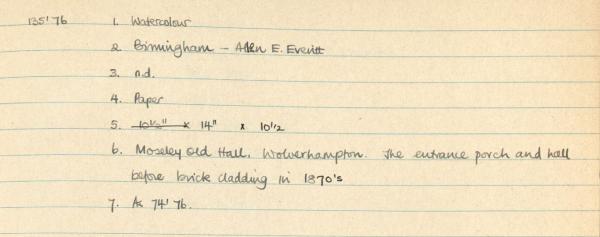 135'76 1. Watercolour
2. Birmingham - Allen E. Everitt
3. n.d.
4. Paper
5. 10½" x 14" x 10½
6. Moseley Old Hall, Wolverhampton. The entrance porch and hall
before brick cladding in 1870's
7. As 74'76.